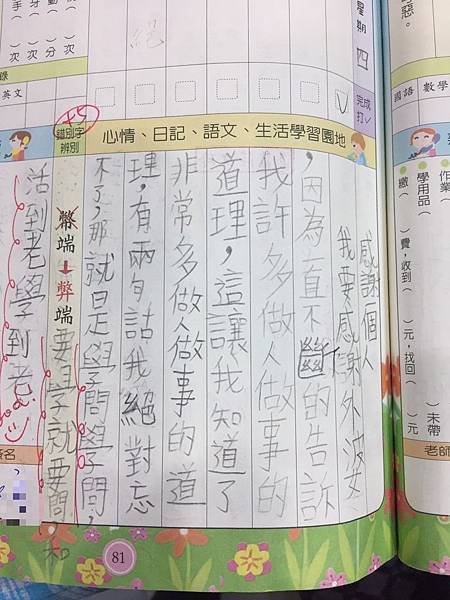 惡。
國語 數學
作業(
學用品(
繳( )費,收到( )元,找回( )元
)未帶
老師
星期四
完成打✓
✓
絕
)次
)分
)次
手(
動(
牙(
錄
英文
+5
錯別字辨別
心情、日記、語文、生活學習園地
感謝個人
我要感謝外婆
，因為一直不斷的告訴
我許多做人做事的
道理，這讓我知道了
非常多做人做事的道
理，有兩句話我絕對忘
不了，那就是學問學問，
幣端→弊端 要學就要問，和
活到老學到老。
簽名
81